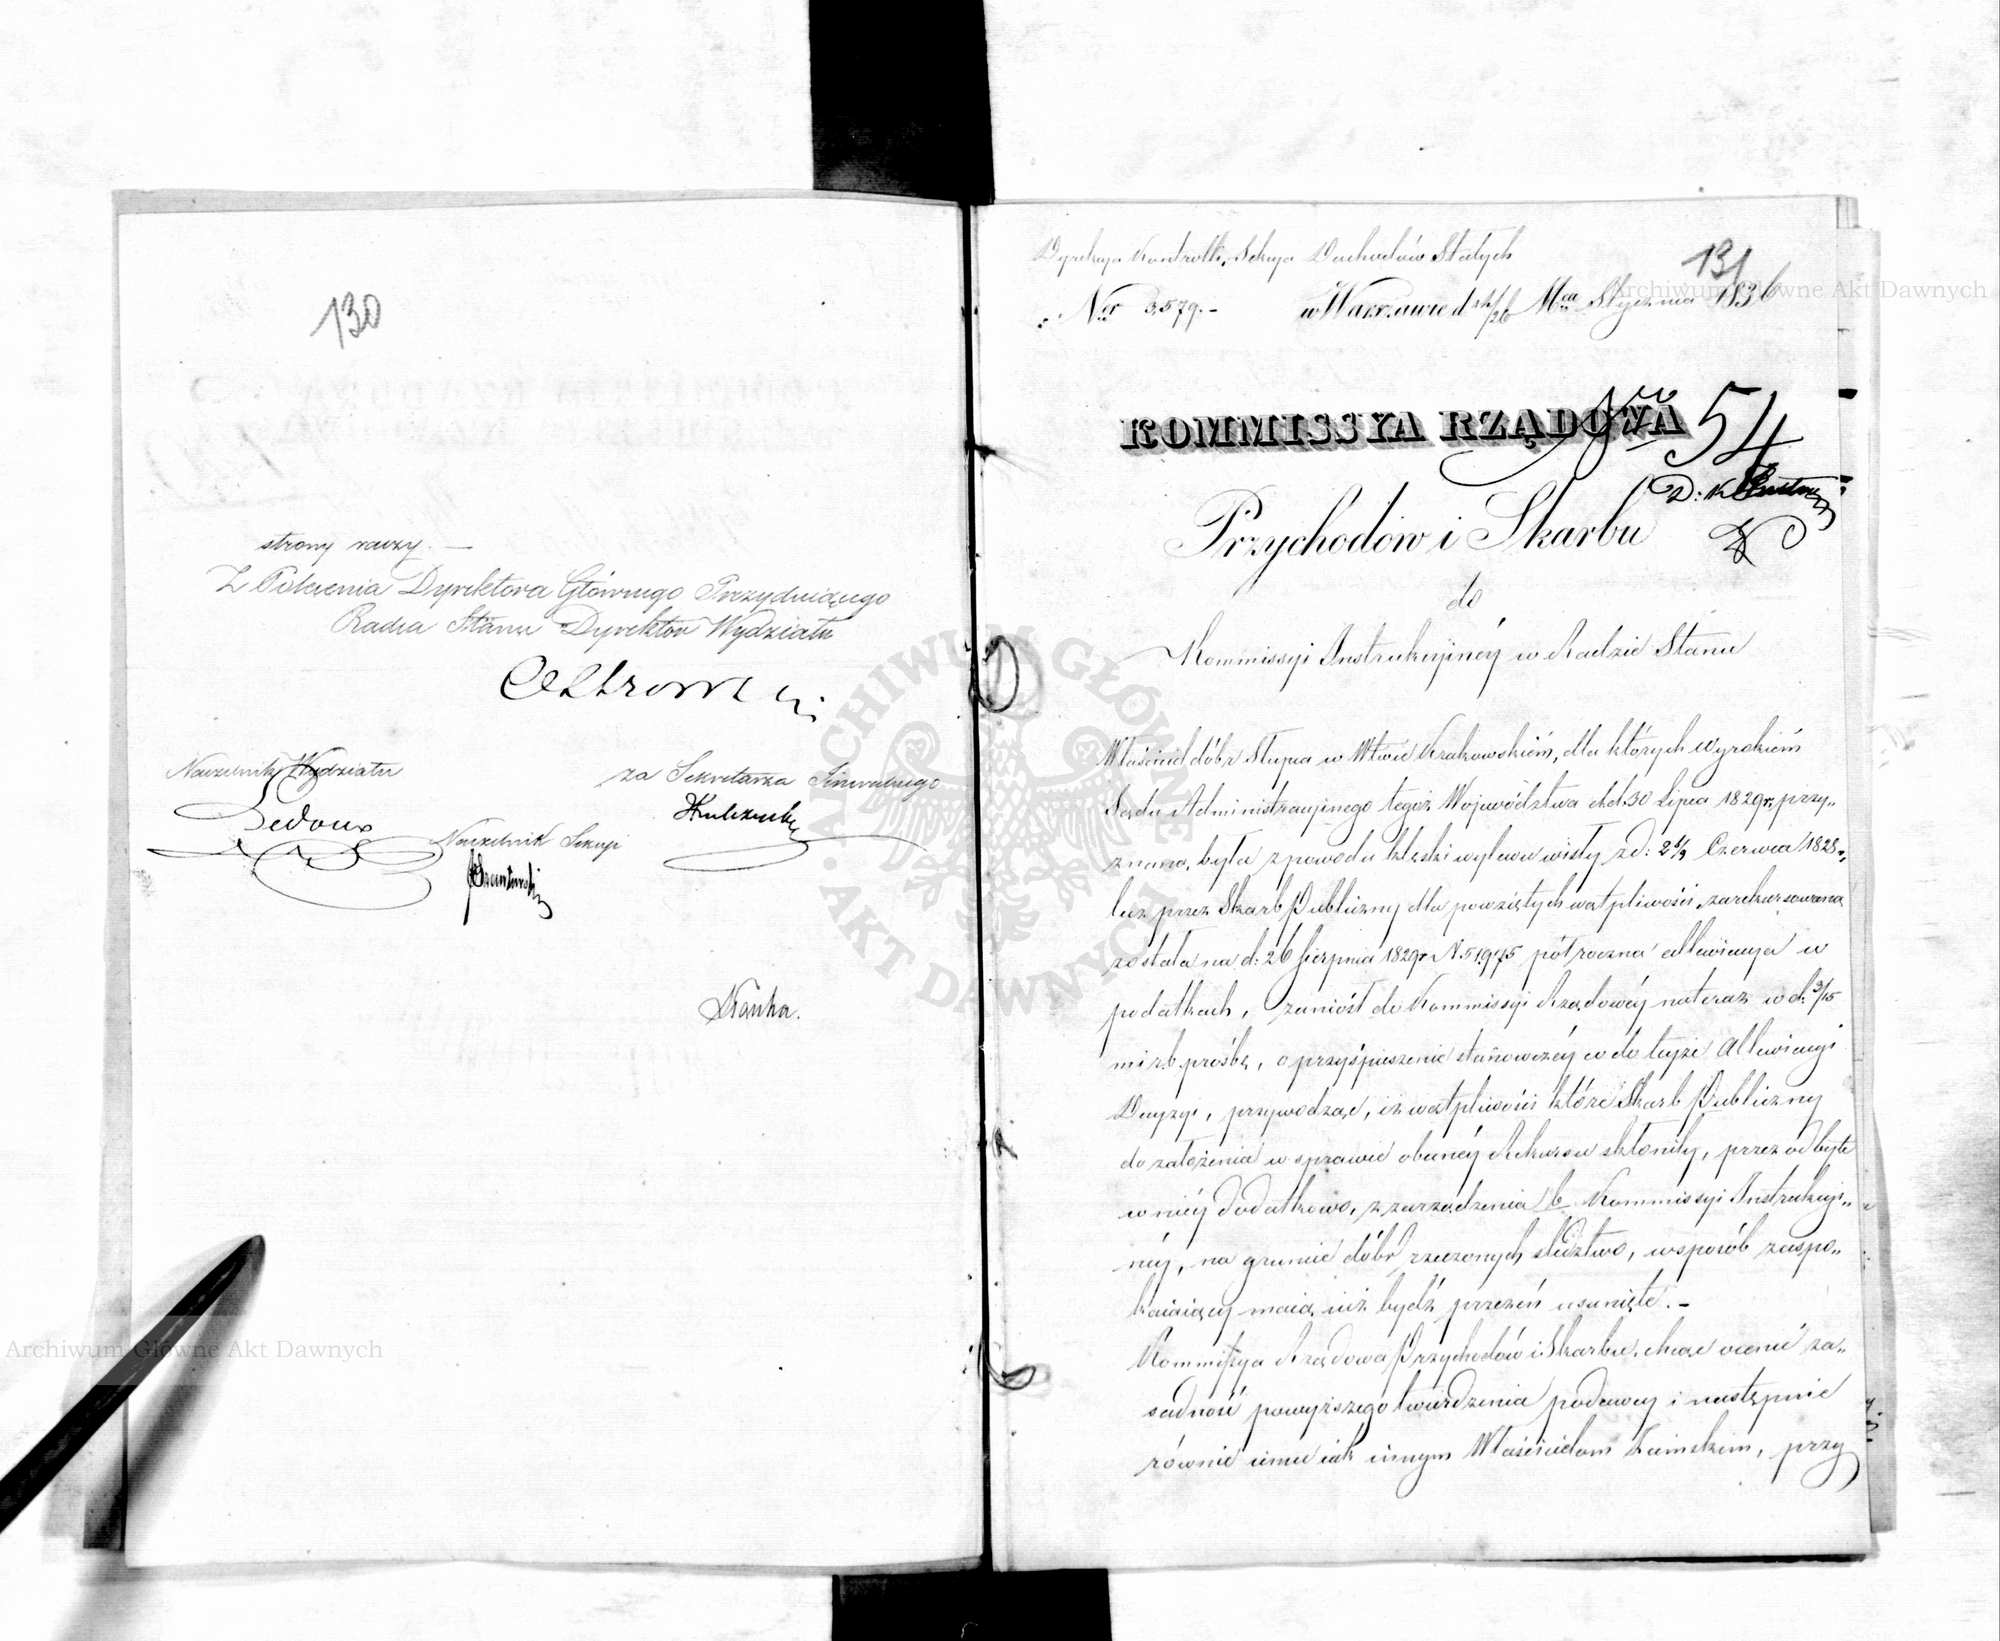 130
strony raczy. —
Z Polecenia Dyrektora Głównego Prezydującego
Radca Stanu Dyrektor Wydziału
Naczelnik Wydziału
Ledoux
za Sekretarza Generalnego
Naczelnik Sekcyi
131
Dyrekcya Kontrolli, Sekcya Dochodów Stałych
Nr 3,579.- w Warszawie d 14/26 Mca Stycznia 1836
KOMMISSYA RZĄDOWA
No 54
Przychodów i Skarbu
do
Kommissyi Instrukcyinéy w Radzie Stanu
Właściciel dóbr Słupia w Wtwie Krakowskiém, dla których wyrokiém
Sądu Administracyinego tegoż Województwa d.d. 30 Lipca 1829r. przy„
znana, była z powodu klęski wylewu wisły z d: Czerwca 1828r.,
lecz przez Skarb Publiczny dla powziętych wątpliwości, zarekursowaną
została na d: 26 Sierpnia 1829r N. 51,975 półroczna allewiacya w
podatkach, zaniósł do Kommissyi Rządowéy nateraz w d. 3/15
m i r.b. prośbę, o przyśpieszenie stanowczéy co do teyże Allewiacyi
Decyzyi, przywodząc, iż wątpliwości które Skarb Publiczny
do założenia w sprawie obecnéy Rekursu skłoniły, przez odbyte
w niéy dodatkowo, z zarządzenia b. Kommissyi Instrukcyi„
néy, na gruncie dóbr rzeczonych śledztwo, w sposób zaspo„
kaiaiący maią iuż bydź przezeń usunięte. –
Kommissya Rządowa Przychodów i Skarbu, chcąc ocenić za„
sadność powyższego twierdzenia podawcy i następnie
równie iemu iak innym Właścicielom Ziemskim, przy
Archiwum Główne Akt Dawnych
Archiwum Główne Akt Dawnych
ARCHIWUM GŁÓWNE AKT DAWNYCH